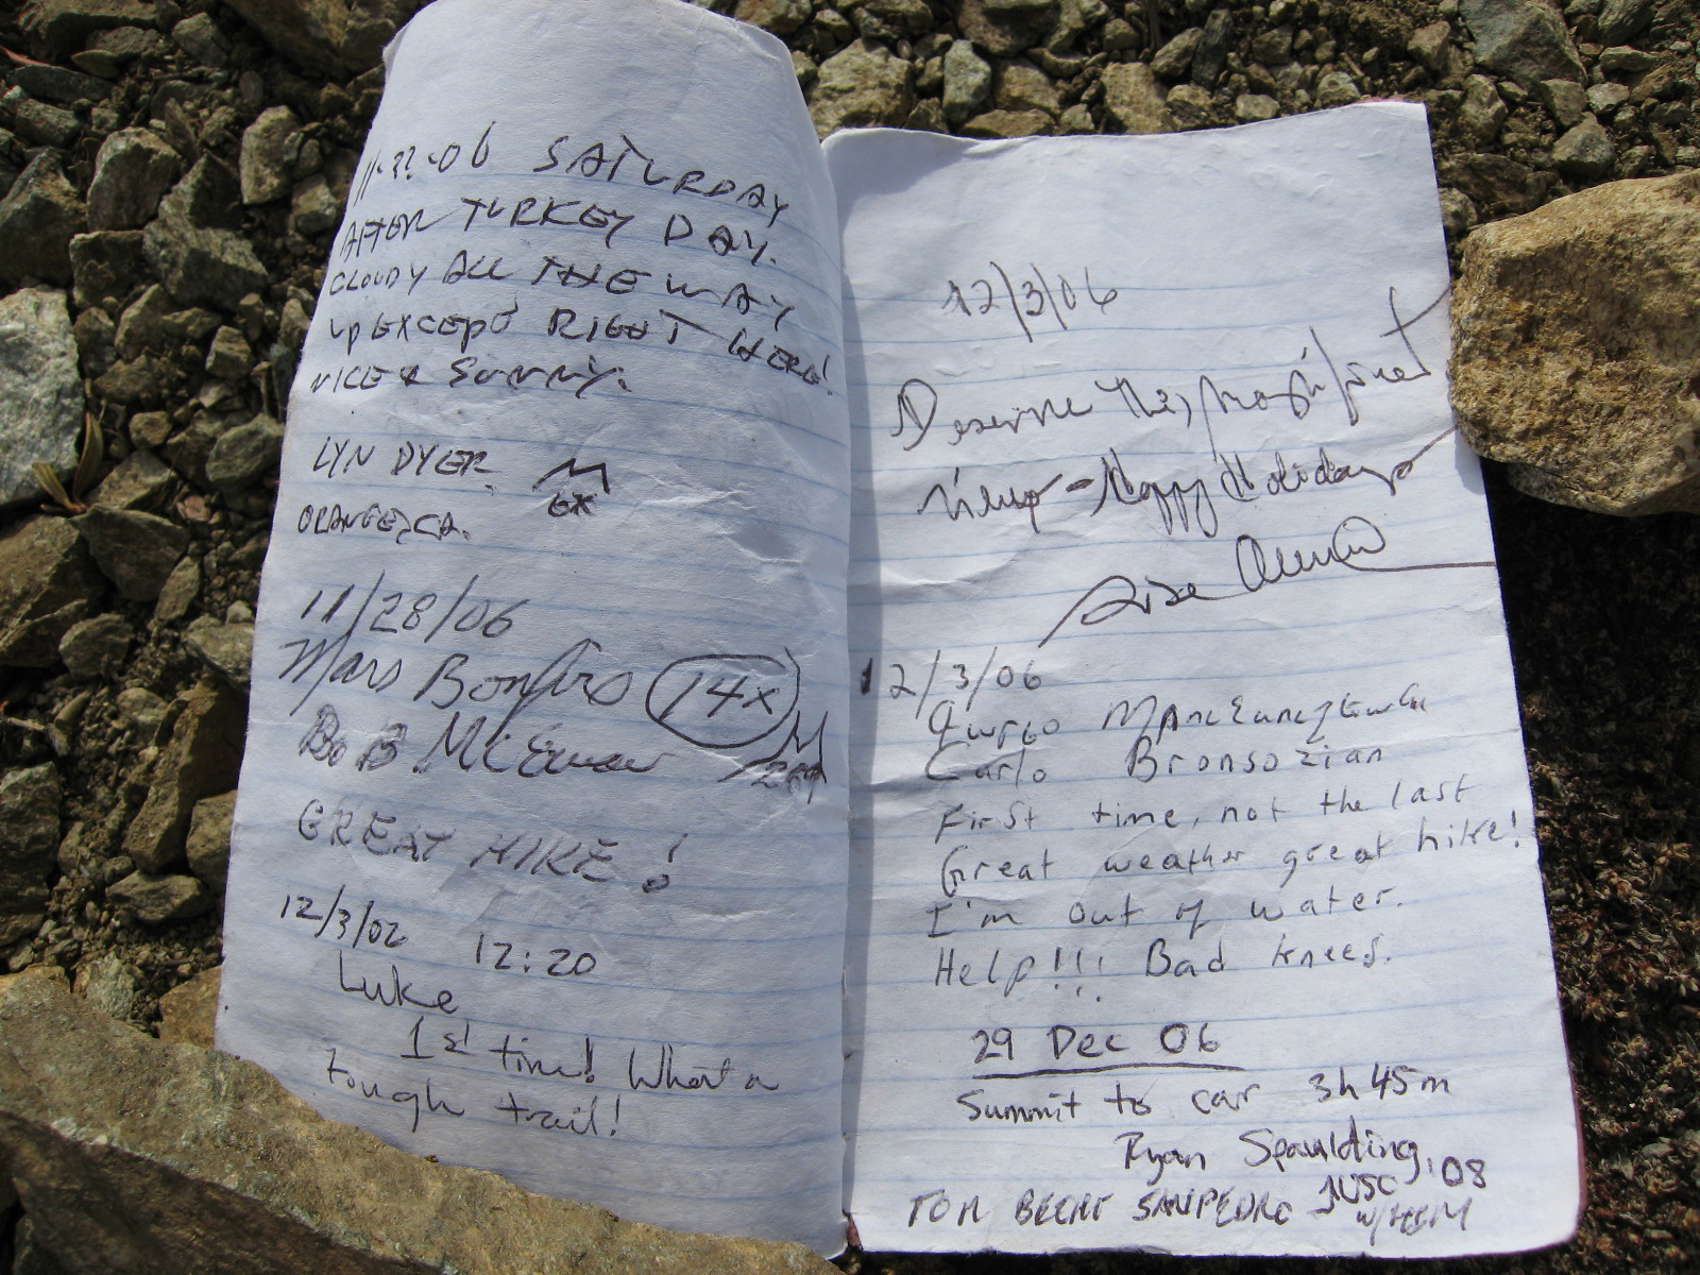 -06 SATURDAY
AFTER TURKEY DAY.
CLOUDY ALL THE WAY
UP EXCEPT RIGHT HERE!
NICE & SUNNY.
LYN DYER
ORANGE, CA.
11/28/06
Mars Bonfire 14x
BOB McEwan
GREAT HIKE!
12/3/02 12:20
Luke
1st time! What a
tough trail!
12/3/06
the magnificent
views - Happy Holidays
12/3/06
Carlo Bronsozian
First time, not the last
Great weather great hike!
I'm out of water.
Help!!! Bad knees.
29 Dec 06
Summit to car 3h 45m
Ryan Spaulding, USC '08
TOM SAN PEDRO